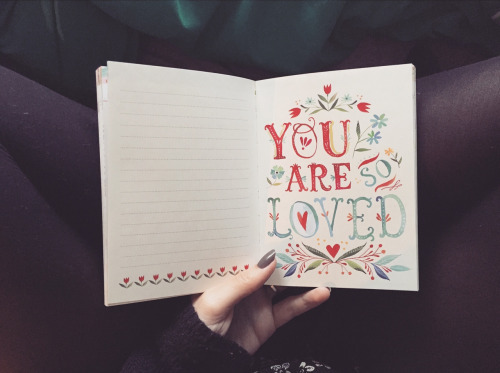 YOU
ARE SO
LOVED